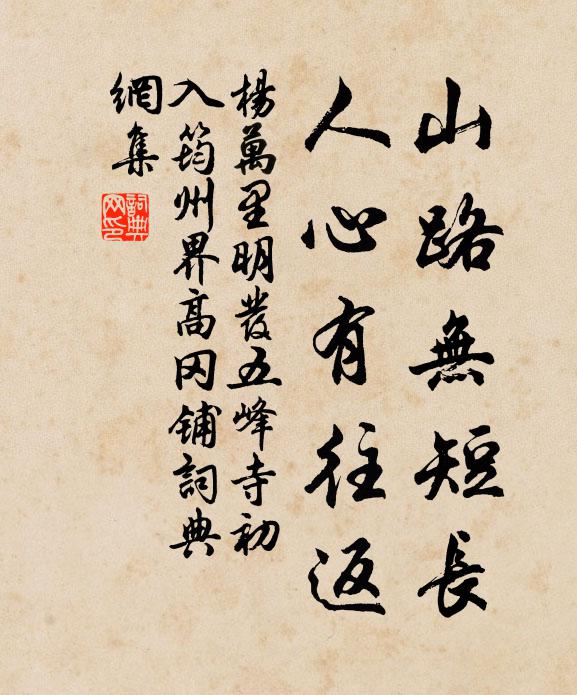 山路無短長
人心有往返
楊萬里明發五峰寺初
入筠州界高岡鋪詞典
網集
詞典網印